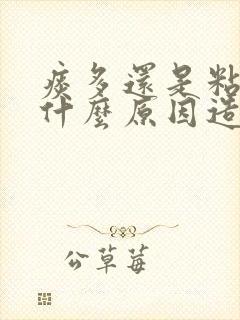 痰多還是粘
什麼原因造
公草莓